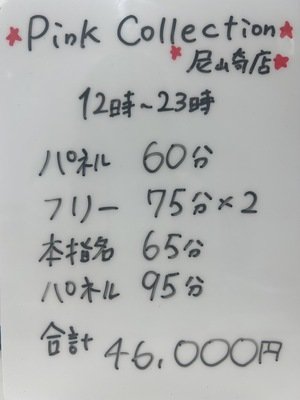 Pink Collection
尼崎店
12時~23時
パネル 60分
フリー 75分×2
本指名 65分
パネル 95分
合計 46,000円